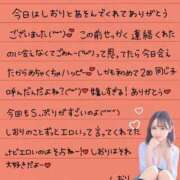 今日はしおりとあそんでくれてありがとう
ございました(˶˙ᵕ˙˶)♡ この前せっかく連絡くれた
のに会えなくてごめん…って思ってたら今日会え
たからめちゃくちゃハッピー♡ しかも初めて2回同じ子
呼んだんだよねღ 嬉しすぎる！ありがとう♡
今回もS.ぷりがすごいのよ(˶˙ᵕ˙˶)♡
しおりのことずっとエロいって言ってくれてた
エロいのはそっちね〜! しおりはそれ
大好きだよ〜
しおり